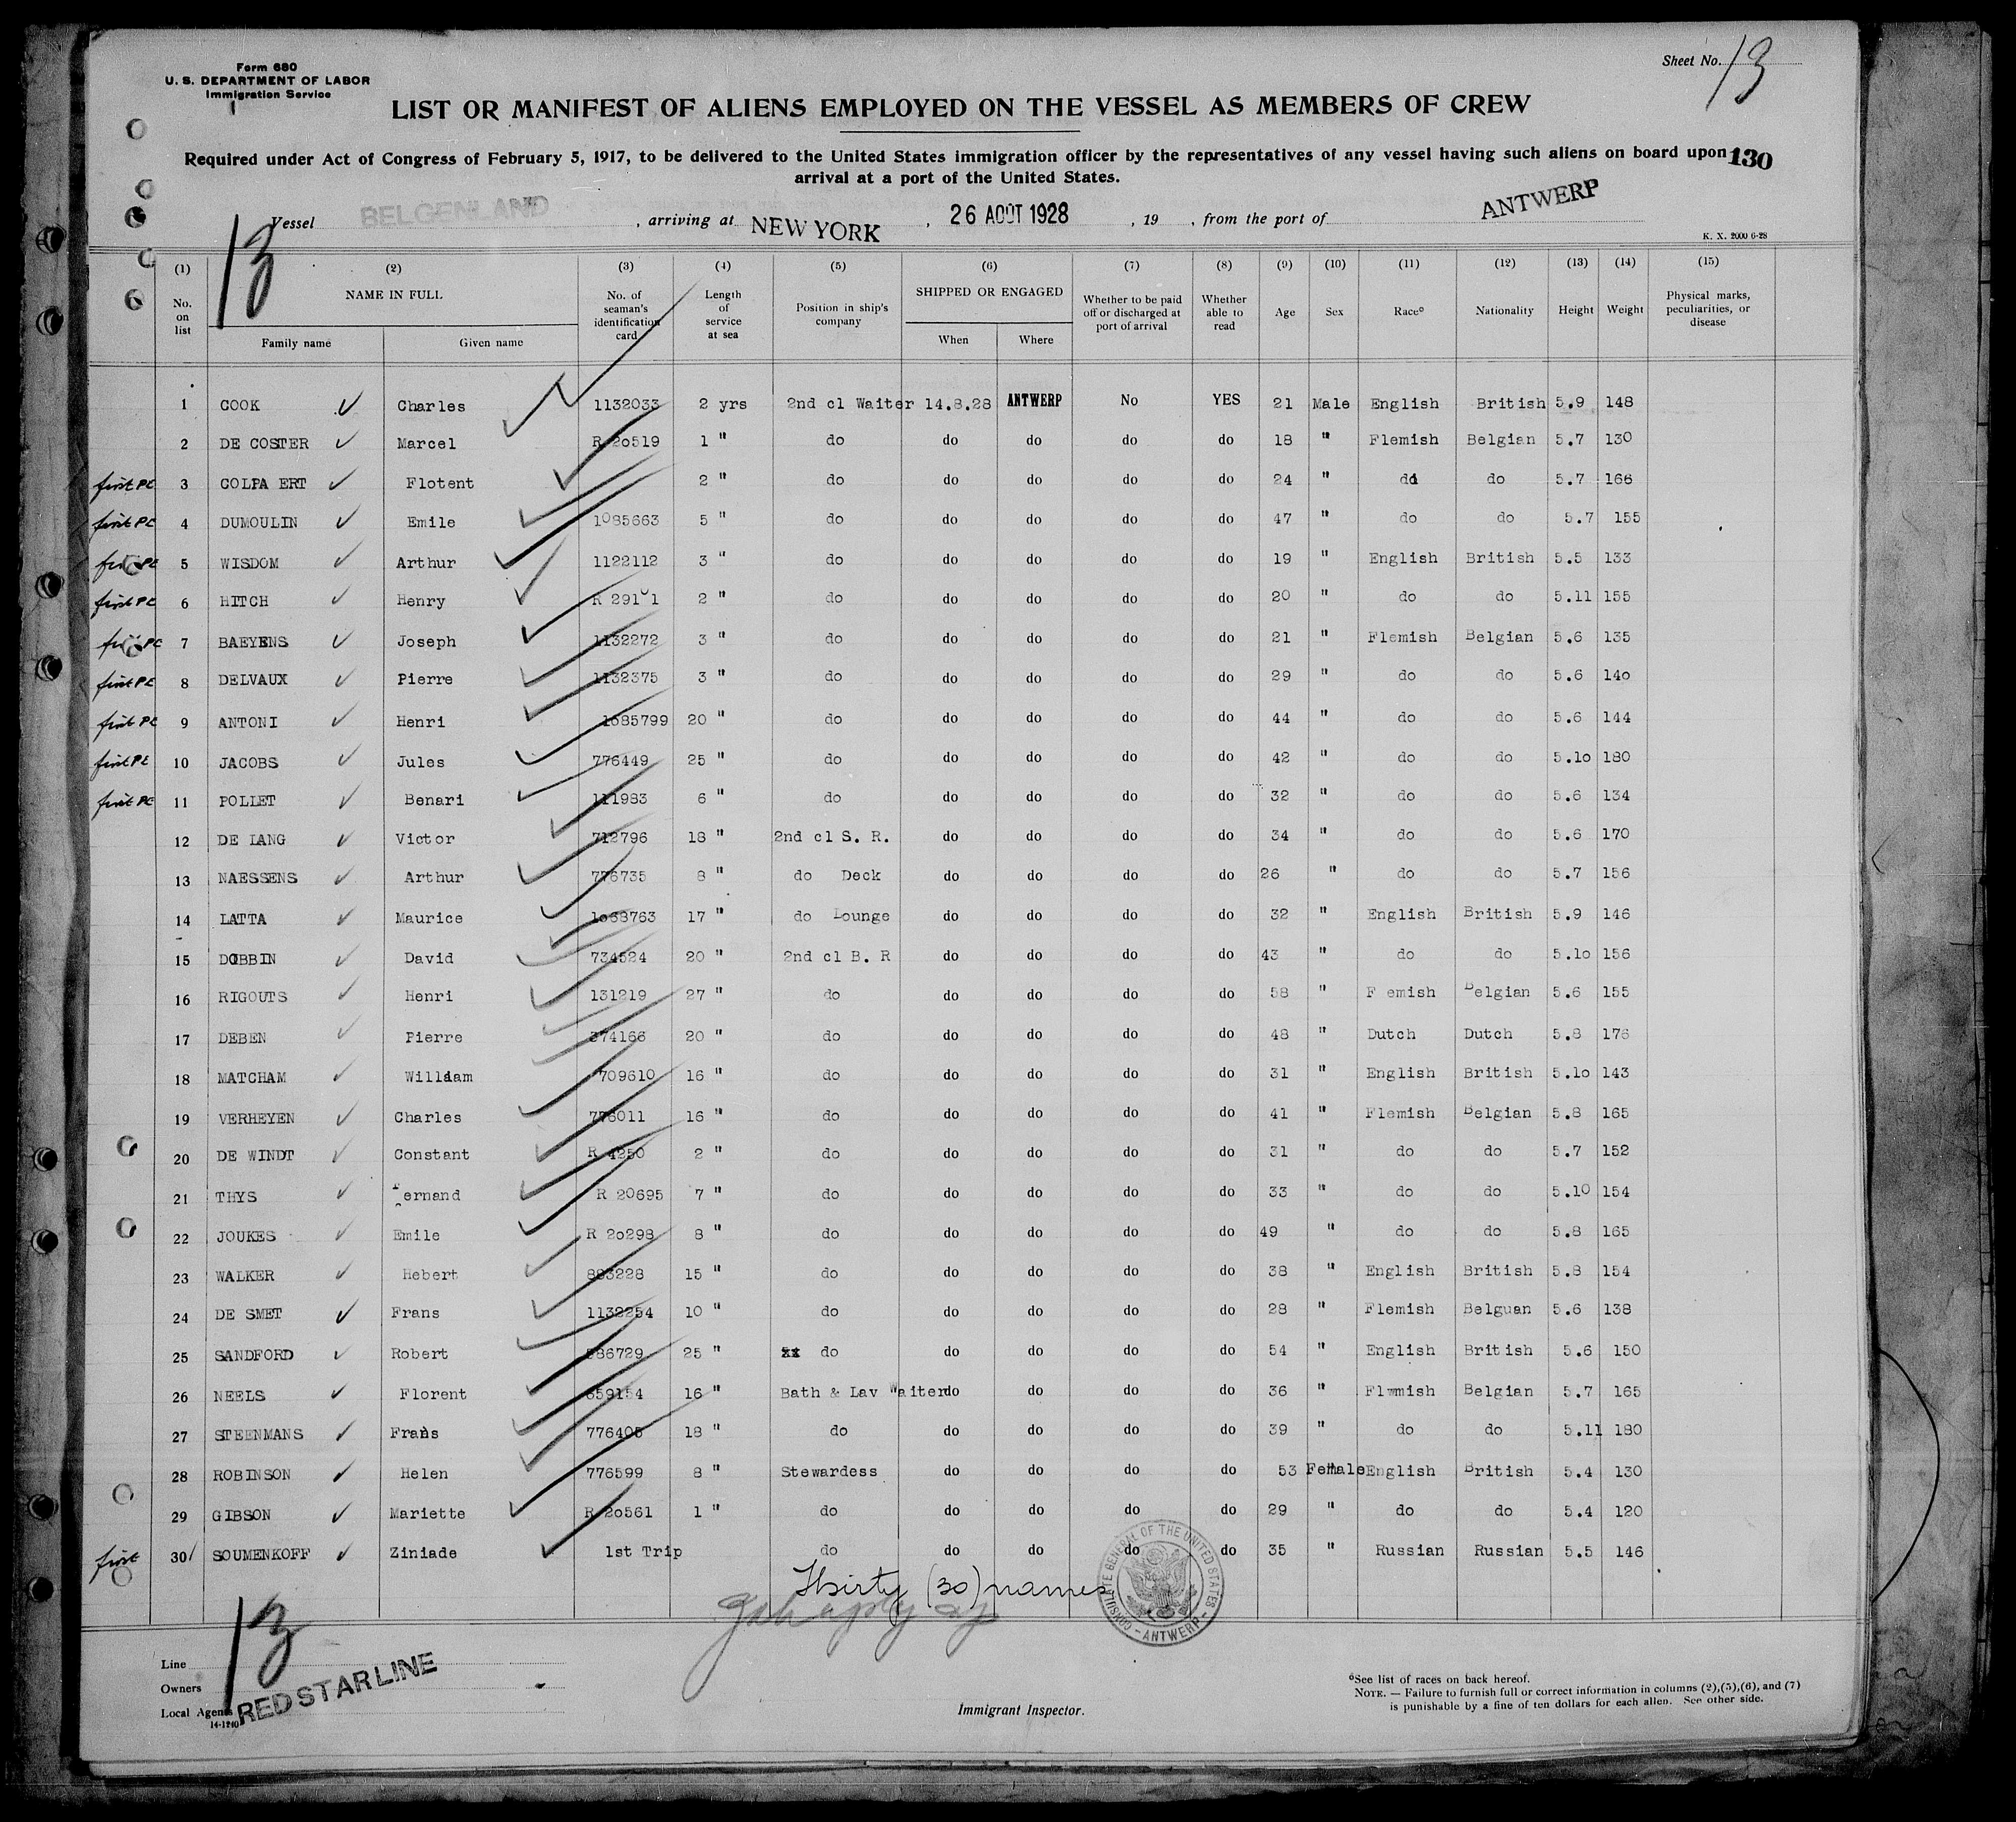 Form 680
U. S. DEPARTMENT OF LABOR
Immigration Service
Sheet No. 13
LIST OR MANIFEST OF ALIENS EMPLOYED ON THE VESSEL AS MEMBERS OF CREW
Required under Act of Congress of February 5, 1917, to be delivered to the United States immigration officer by the representatives of any vessel having such aliens on board upon 130
arrival at a port of the United States.
13 Vessel BELGENLAND, arriving at NEW YORK, 26 AOUT 1928, 19 , from the port of ANTWERP
K. X. 2000 6-28
(1) (2) (3) (4) (5) (6) (7) (8) (9) (10) (11) (12) (13) (14) (15)
No. on list NAME IN FULL Family name Given name No. of seaman's identification card Length of service at sea Position in ship's company SHIPPED OR ENGAGED When Where Whether to be paid off or discharged at port of arrival Whether able to read Age Sex Race° Nationality Height Weight Physical marks, peculiarities, or disease
1 COOK Charles 1132033 2 yrs 2nd cl Waiter 14.8.28 ANTWERP No YES 21 Male English British 5.9 148
2 DE COSTER Marcel R 20519 1 " do do do do do 18 " Flemish Belgian 5.7 130
first PE 3 COLPA ERT Flotent 2 " do do do do do 24 " dd do 5.7 166
first PE 4 DUMOULIN Emile 1085663 5 " do do do do do 47 " do do 5.7 155
first PE 5 WISDOM Arthur 1122112 3 " do do do do do 19 " English British 5.5 133
first PE 6 HITCH Henry R 29101 2 " do do do do do 20 " do do 5.11 155
first PE 7 BAEYENS Joseph 1132272 3 " do do do do do 21 " Flemish Belgian 5.6 135
first PE 8 DELVAUX Pierre 1132375 3 " do do do do do 29 " do do 5.6 140
first PE 9 ANTONI Henri 1085799 20 " do do do do do 44 " do do 5.6 144
first PE 10 JACOBS Jules 776449 25 " do do do do do 42 " do do 5.10 180
first PE 11 POLLET Benari 111983 6 " do do do do do 32 " do do 5.6 134
12 DE LANG Victor 712796 18 " 2nd cl S. R. do do do do 34 " do do 5.6 170
13 NAESSENS Arthur 776735 8 " do Deck do do do do 26 " do do 5.7 156
14 LATTA Maurice 1068763 17 " do Lounge do do do do 32 " English British 5.9 146
15 DOBBIN David 734524 20 " 2nd cl B. R do do do do 43 " do do 5.10 156
16 RIGOUTS Henri 131219 27 " do do do do do 58 " F emish Belgian 5.6 155
17 DEBEN Pierre 374166 20 " do do do do do 48 " Dutch Dutch 5.8 176
18 MATCHAM William 709610 16 " do do do do do 31 " English British 5.10 143
19 VERHEYEN Charles 776011 16 " do do do do do 41 " Flemish Belgian 5.8 165
20 DE WINDT Constant R 4250 2 " do do do do do 31 " do do 5.7 152
21 THYS Fernand R 20695 7 " do do do do do 33 " do do 5.10 154
22 JOUKES Emile R 20298 8 " do do do do do 49 " do do 5.8 165
23 WALKER Hebert 883228 15 " do do do do do 38 " English British 5.8 154
24 DE SMET Frans 1132254 10 " do do do do do 28 " Flemish Belguan 5.6 138
25 SANDFORD Robert 586729 25 " xx do do do do do 54 " English British 5.6 150
26 NEELS Florent 659154 16 " Bath & Lav Waiter do do do do 36 " Flwmish Belgian 5.7 165
27 STEENMANS Frans 776405 18 " do do do do do 39 " do do 5.11 180
28 ROBINSON Helen 776599 8 " Stewardess do do do do 53 Female English British 5.4 130
29 GIBSON Mariette R 20561 1 " do do do do do 29 " do do 5.4 120
first 30 SOUMENKOFF Ziniade 1st Trip do do do do do 35 " Russian Russian 5.5 146
Thirty (30) names
CONSULATE GENERAL OF THE UNITED STATES - ANTWERP -
13
Line
Owners
Local Agents
RED STAR LINE
14-1240
Immigrant Inspector.
°See list of races on back hereof.
NOTE. — Failure to furnish full or correct information in columns (2),(5),(6), and (7)
is punishable by a fine of ten dollars for each alien. See other side.